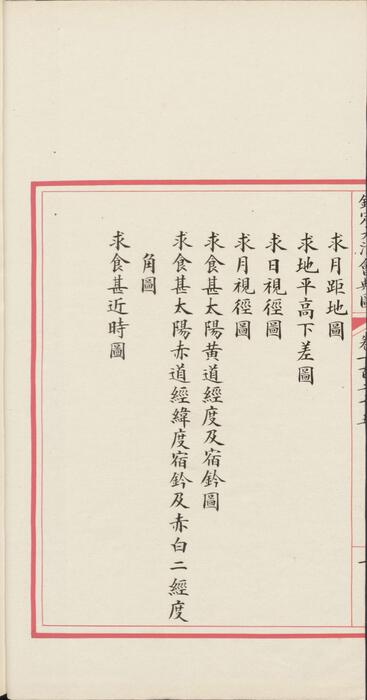 求月距地圖
求地平高下差圖
求日視徑圖
求月視徑圖
求食甚太陽黄道經度及宿鈐圖
求食甚太陽赤道經緯度宿鈐及赤白二經度
角圖
求食甚近時圖